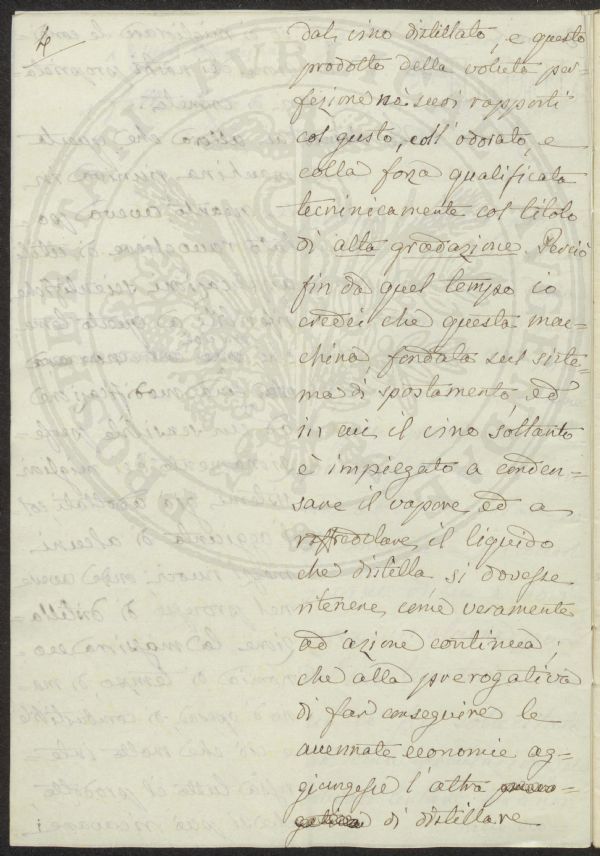 4
dal vino distillato, e questo
prodotto della voluta per-
fezione nè suoi rapporti
col gusto, coll'odorato, e
colla forza qualificata
tecninicamente col titolo
di alta gradazione. Perciò
fin da quel tempo io
credei che questa mac-
china, fondata sul siste-
ma di spostamento, ed
in cui il vino soltanto
è impiegato a conden-
sare il vapore, ed a
raffreddare il liquido
che distilla si dovesse
ritenere, come veramente
ad azione continua;
che alla prerogativa
di far conseguire le
accennate economie ag-
giungesse l'altra
di distillare